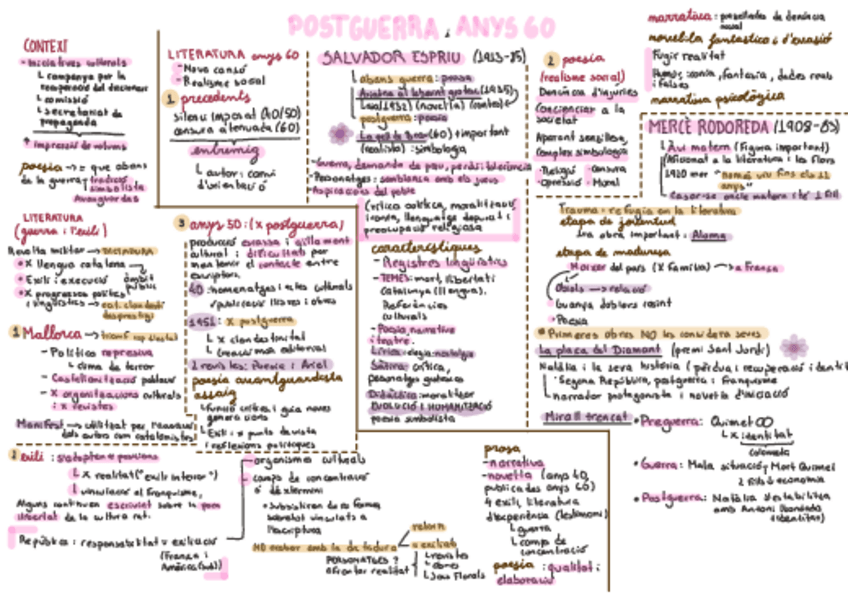 POSTGUERRA i ANYS 60
CONTEXT
• Iniciatives culturals
L campanya per la
recuperació del
L comissió
L secretariat de
propaganda
↑ impressió de volums
poesia → = que abans
de la guerra
simbolista
Avantguardes
LITERATURA
(guerra i l'exili)
Revolta militar → DICTADURA
• X llengua catalana
àmbit
públic
• Exili i execució
• X progressos polítics i
lingüístics →
desprestigi
1 Mallorca →
- Política repressiva
L clima de terror
- Castellanització població
- X organitzacions culturals
i x revistes
Manifest → utilitzat per
dels autors com catalanistes
2 exili:
L X realitat ("exili interior")
L vinculació al franquisme,
Alguns continuen escrivint sobre la poca
llibertat de la cultura cat.
República: responsabilitat = exiliació
(França i
Amèrica (sud))
LITERATURA anys 60
- Nova cançó
- Realisme social
1 precedents
silenci imposat (40/50)
censura atenuada (60)
entremig
L autor: canvi
d'orientació
3 anys 50: (x postguerra)
producció escassa i aïllament
cultural i dificultats per
mantenir el contacte entre
escriptors.
40: homenatges i actes culturals
1951: X postguerra
L X clandestinitat
(creació món editorial)
2 revistes: Poesia i Ariel
poesia avantguardista
assaig
L funció crítica i guia noves
generacions
L Exili: x punts de vista
i reflexions polítiques
- organismes culturals
- camps de concentració
o d'extermini
• Subsistiren de no formes
sobretot vinculats a
l'escriptura
NO acabar amb la dictadura
retorn
= exiliats
PERSONATGES?
afrontar realitat
L revistes
L obres
L Jocs Florals
SALVADOR ESPRIU (1913-85)
L abans guerra: prosa
Ariadna al laberint grotesc (1935)
Laia (1932) (novel·la) (contes)
postguerra: poesia
La pell de brau (60) + important
(realista): simbologia
- Guerra, demanda de pau, perdó i tolerància
- Personatges: semblança amb els jueus
- Aspiracions del poble
(crítica política, moralització
ironia, llenguatge depurat i
preocupació religiosa
característiques
- Registres lingüístics
- TEMES: mort, llibertat i
Catalunya (II guerra).
Referències
culturals
- Poesia narrativa
i teatre.
Lírica: elegia nostàlgia
Sàtira: crítica,
personatges grotescos
Didàctica: moralitzar
EVOLUCIÓ I HUMANITZACIÓ
poesia simbolista
prosa
- narrativa
- novel·la (anys 40,
publicades anys 60)
4 exili, literatura
d'experiència (testimoni)
L guerra
L camps de
concentració
poesia: qualitat i
elaboració
2 poesia
(realisme social)
Denúncia d'injustícies
Conscienciar a la
societat
Aparent senzillesa,
complexa simbologia
• Religió • Censura
• Opressió • Moral
narrativa: novel·les de denúncia
social
novel·la fantàstica i d'evasió
Fugir realitat
Humor, ironia, fantasia, dades reals
i falses
narrativa psicològica
MERCÈ RODOREDA (1908-83)
L Avi matern (figura important)
Aficionat a la literatura i les flors
1920 mor "només viu fins els 11
anys"
Casar-se oncle matern i té 1 fill
Trauma: refugia en la literatura
etapa de joventut
1ra obra important: Aloma
etapa de maduresa
Marxar del país (X família) → a França
Obiols → relació
• Guanya doblers cosint
• Poesia
* Primeres obres NO les considera seves
La plaça del Diamant (premi Sant Jordi)
Natàlia i la seva història (pèrdua i recuperació
L Segona República, postguerra i Franquisme
L narrador protagonista i novel·la d'iniciació
Mirall trencat
• Preguerra: Quimet
L X identitat
Colometa
• Guerra: Mala situació y Mort Quimet
2 fills i economia
• Postguerra: Natàlia s'estabilitza
amb Antoni (bondat)
(identitat)